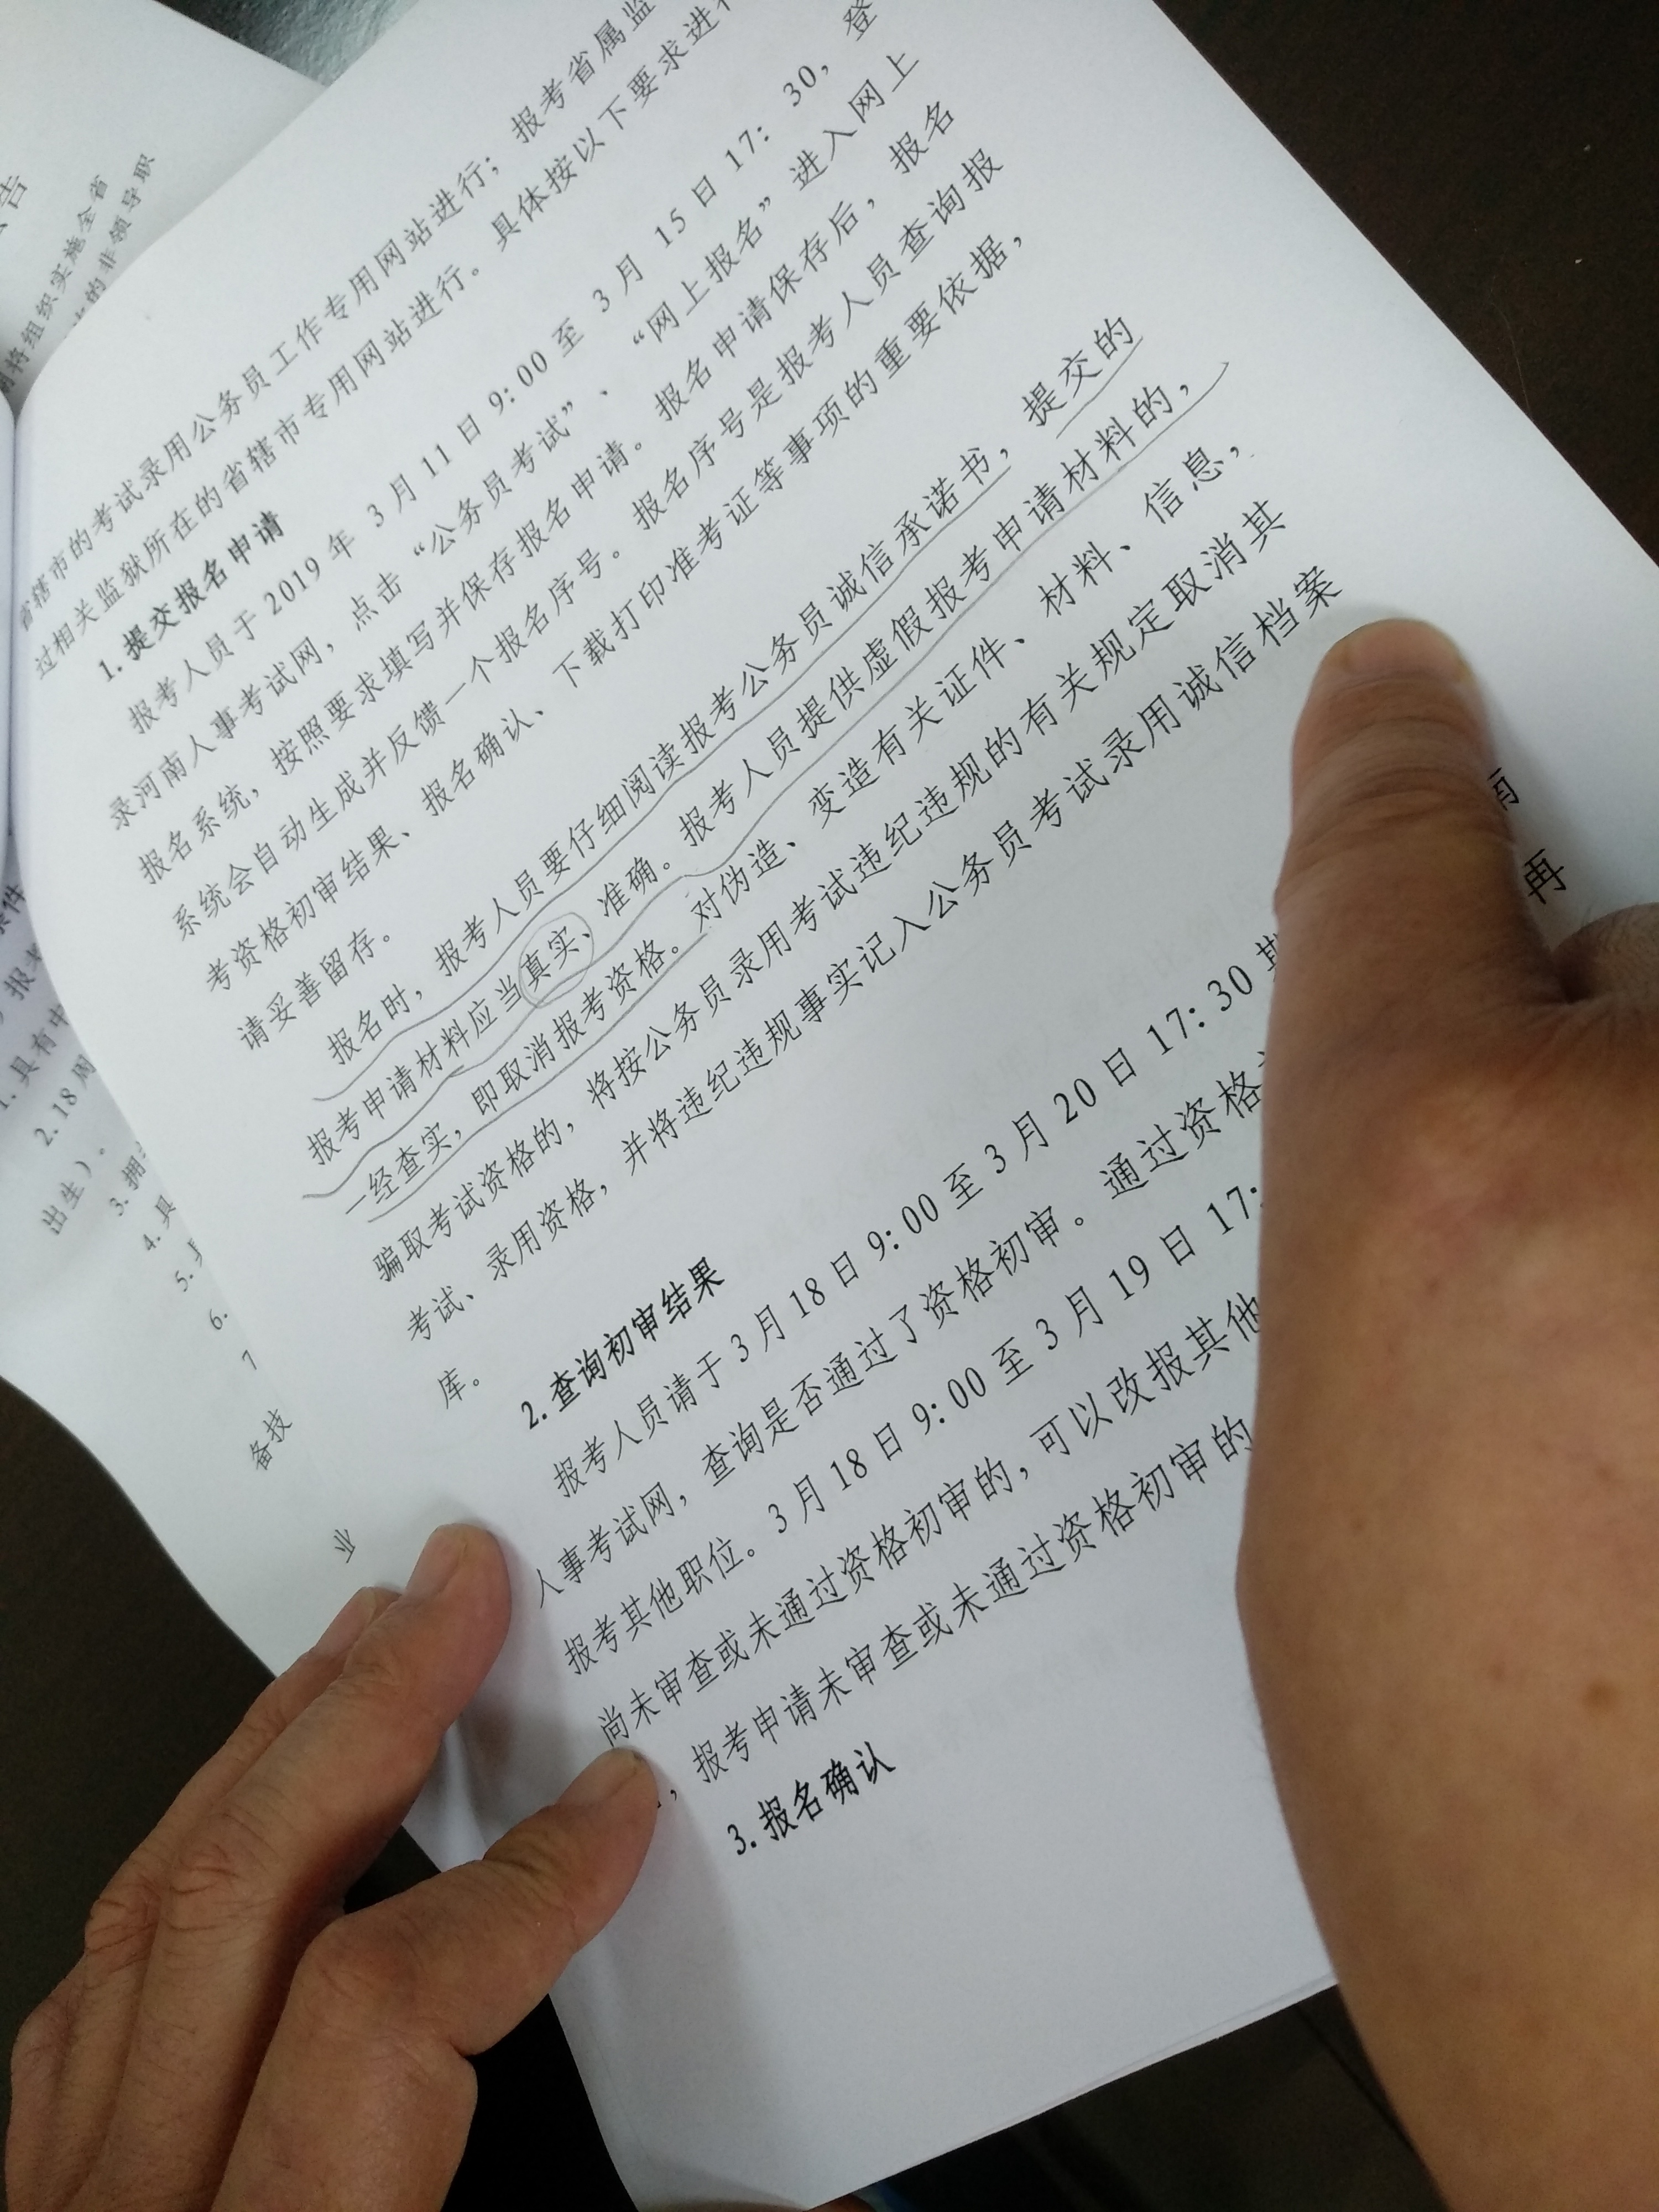 告
将组织实施全省
的非领导职
件
报考
1. 具有中
2. 18周
出生）。
3. 拥
4. 具
5. 具
6.
7
备技
业
报考省属监
省辖市的考试录用公务员工作专用网站进行；
过相关监狱所在的省辖市专用网站进行。具体按以下要求进行
1. 提交报名申请
报考人员于2019年3月11日9:00至3月15日17:30，登
录河南人事考试网，点击“公务员考试”、“网上报名”进入网上
报名系统，按照要求填写并保存报名申请。报名申请保存后，报名
系统会自动生成并反馈一个报名序号。报名序号是报考人员查询报
考资格初审结果、报名确认、下载打印准考证等事项的重要依据，
请妥善留存。
报名时，报考人员要仔细阅读报考公务员诚信承诺书，提交的
报考申请材料应当真实、准确。报考人员提供虚假报考申请材料的，
一经查实，即取消报考资格。对伪造、变造有关证件、材料、信息，
骗取考试资格的，将按公务员录用考试违纪违规的有关规定取消其
考试、录用资格，并将违纪违规事实记入公务员考试录用诚信档案
库。
2. 查询初审结果
报考人员请于3月18日9:00至3月20日17:30期
人事考试网，查询是否通过了资格初审。通过资格
再
报考其他职位。3月18日9:00至3月19日17:
尚未审查或未通过资格初审的，可以改报其他
，报考申请未审查或未通过资格初审的
3. 报名确认